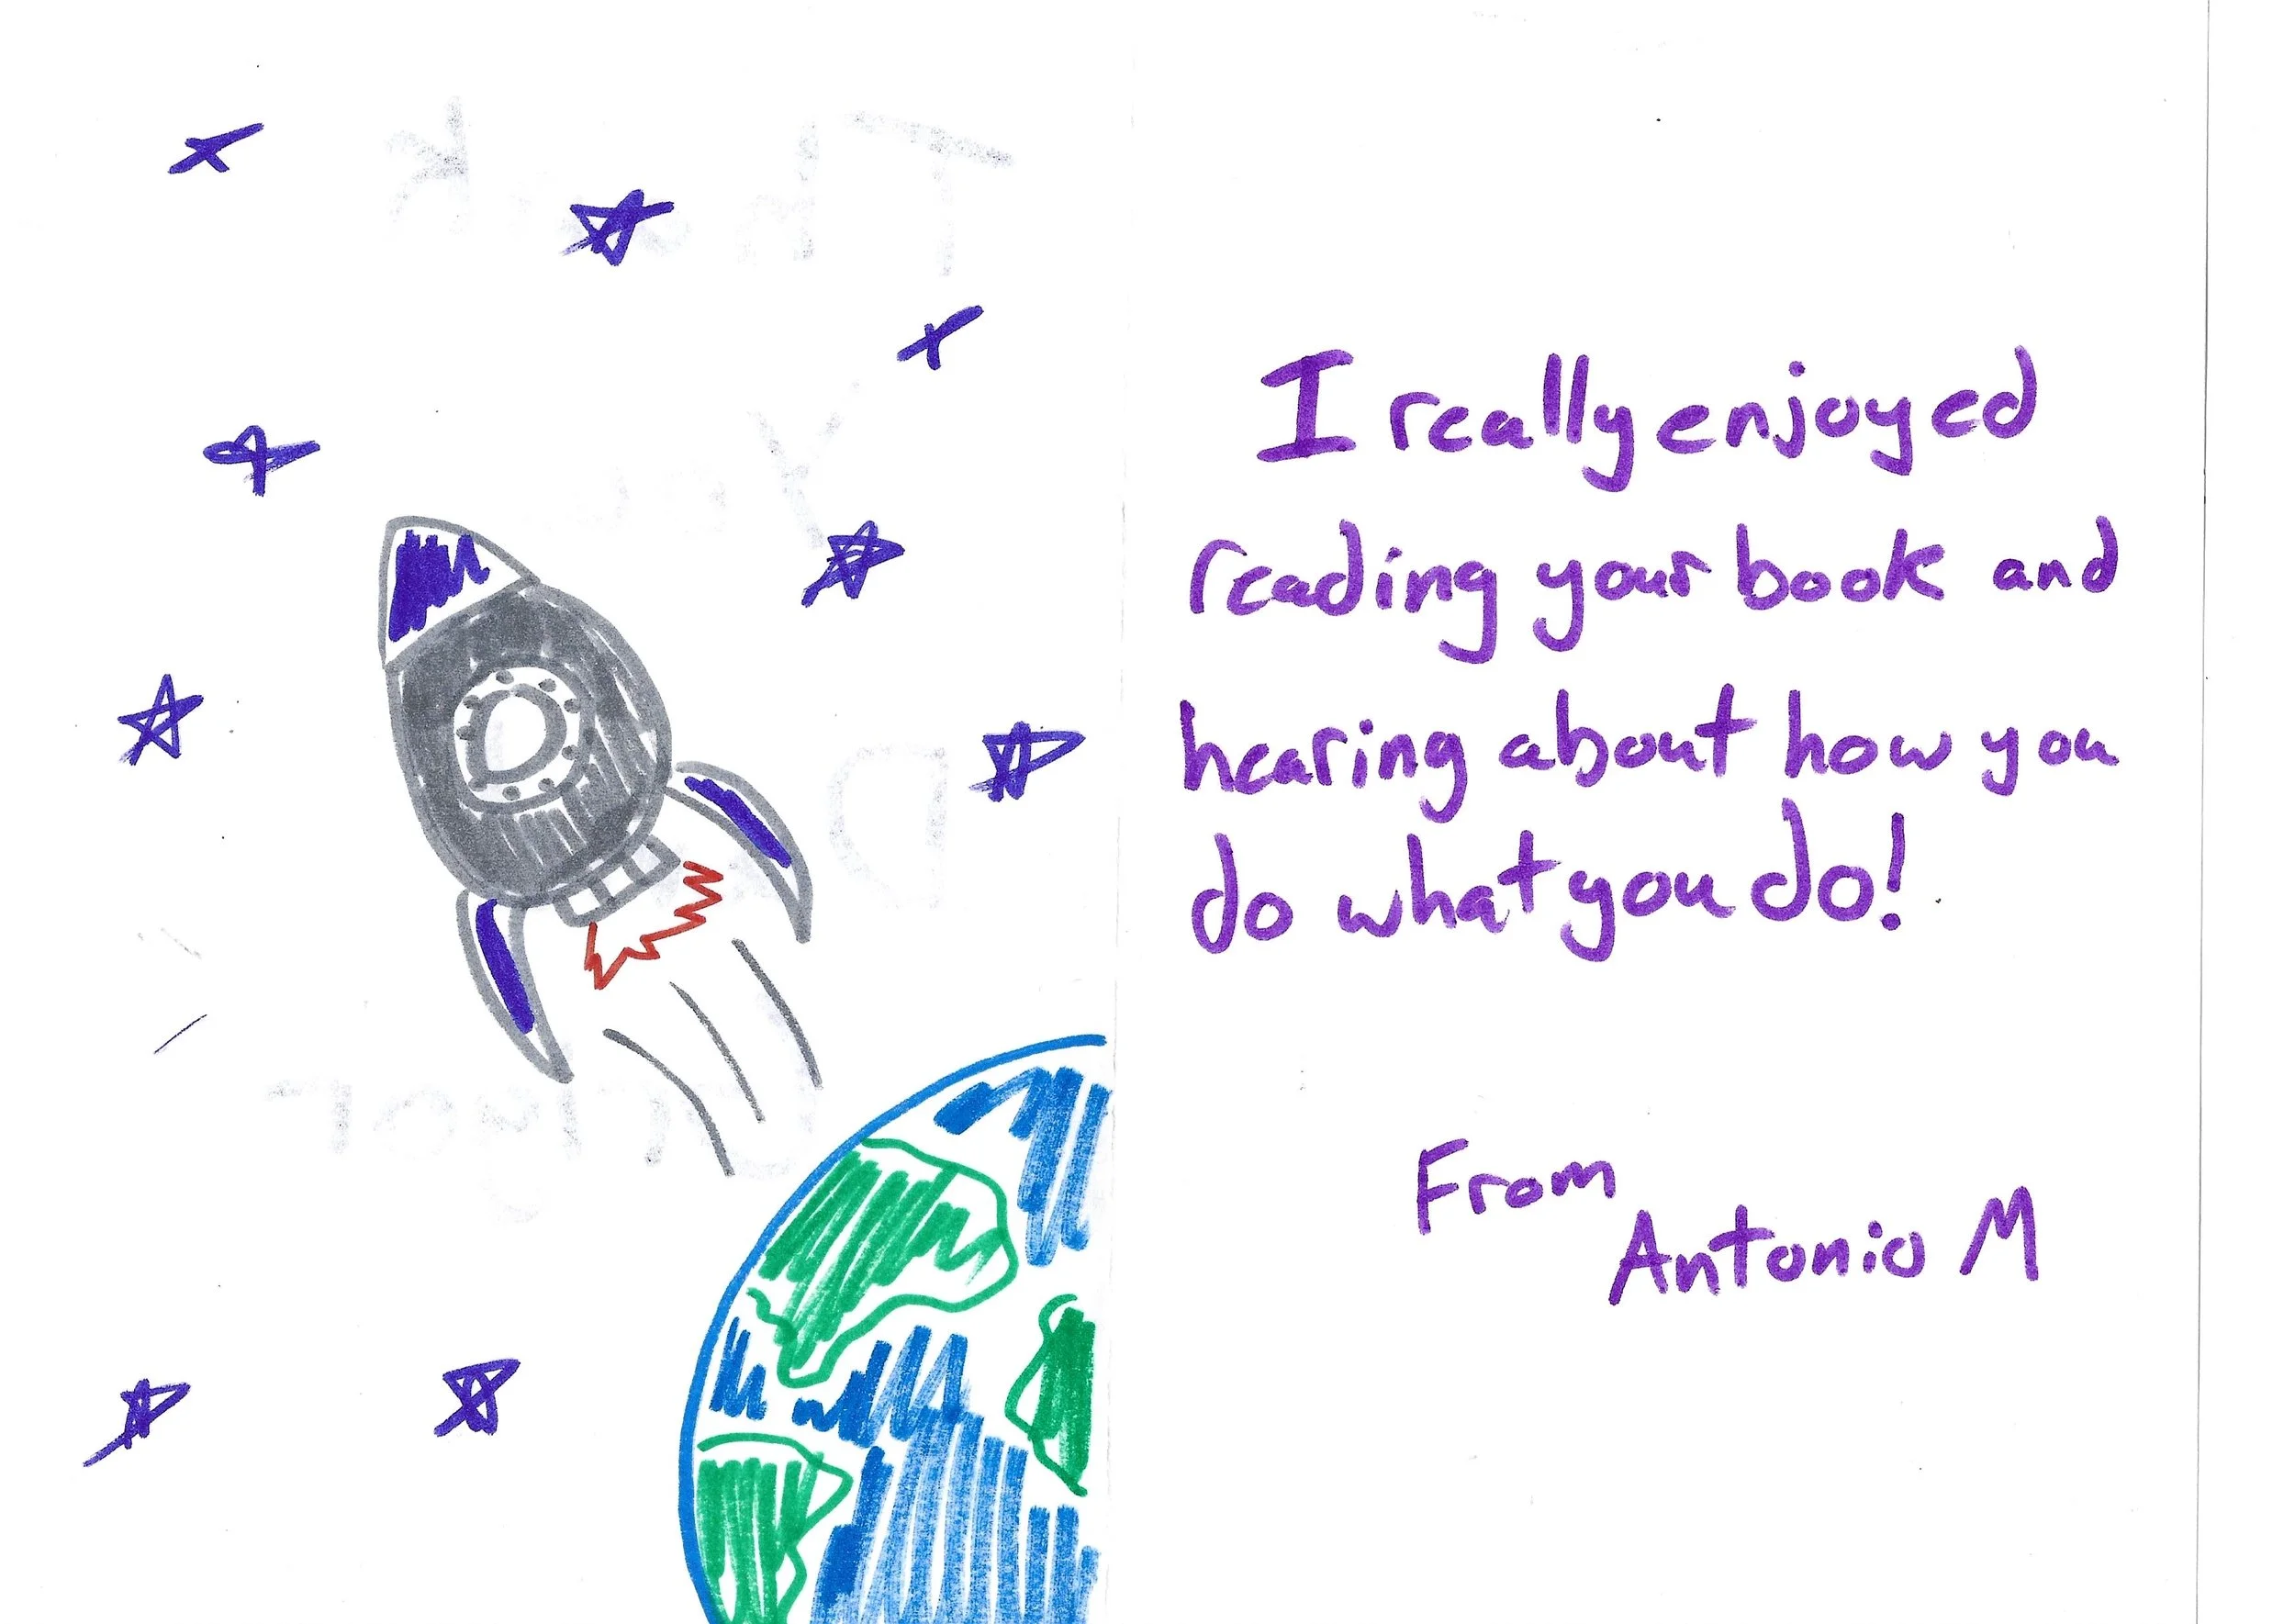 Thank
You
I really enjoyed
reading your book and
hearing about how you
do what you do!
From
Antonio M